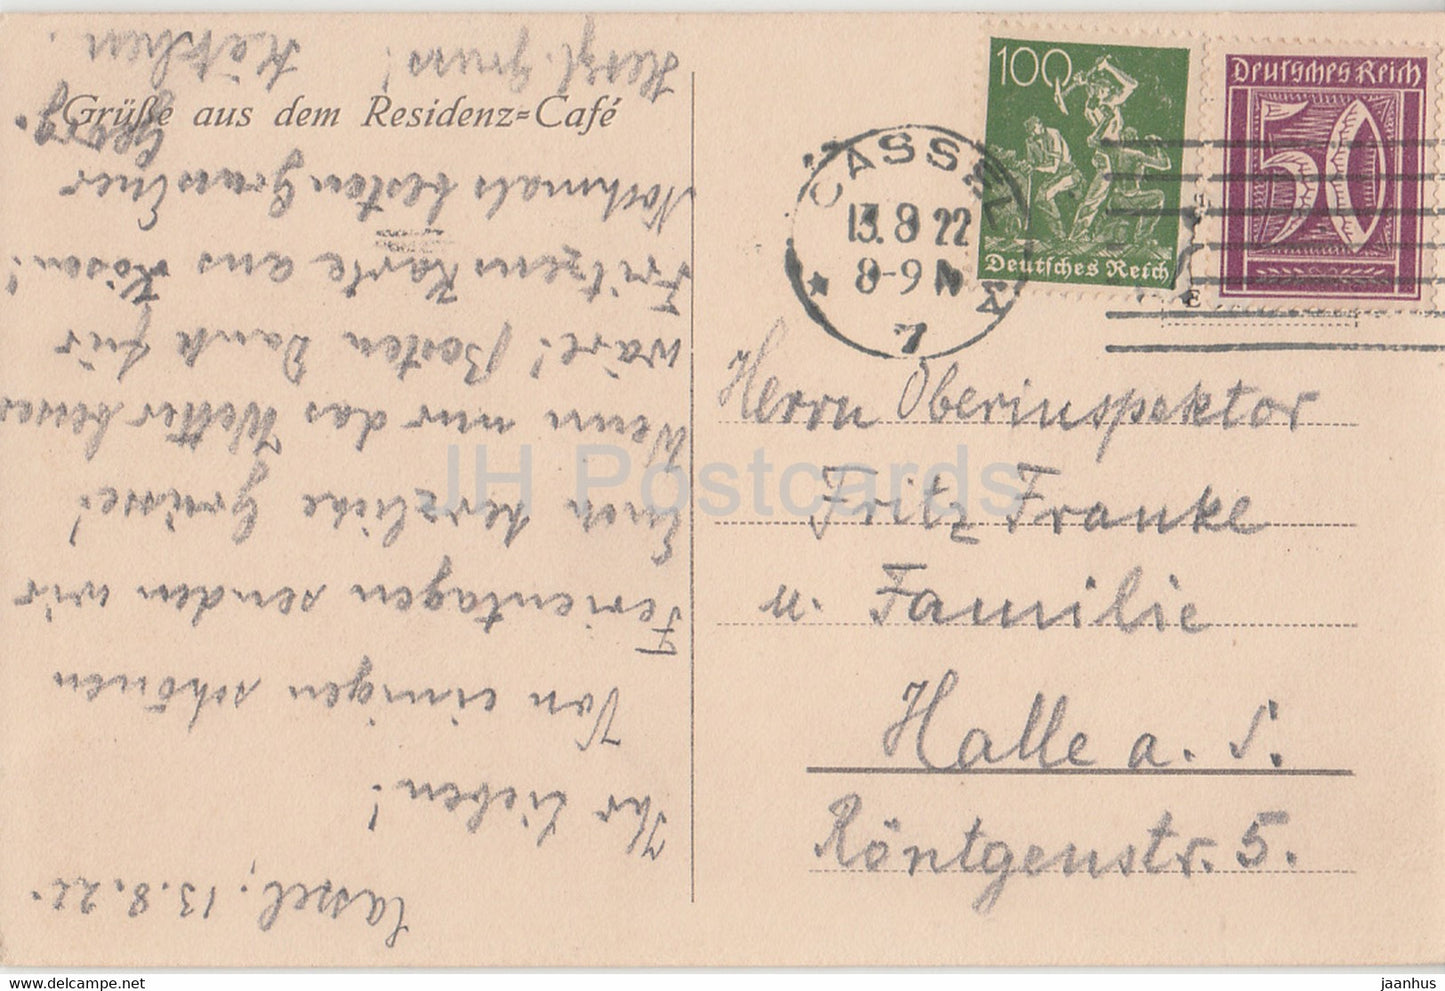 Grüße aus dem Residenz=Café
Cassel, 13.8.22.
Ihr Lieben!
Von einigen schönen
Ferientagen senden wir
Euch herzliche Grüsse!
Wenn nur das Wetter besser
wäre! Besten Dank für
Fritzens Karte aus Kösen!
Nochmals besten Gruss Euer
Georg.
Herzl. Gruss! Kätchen.
100
Deutsches Reich
Deutsches Reich
50
CASSEL
13.8.22
8-9 N
* 7
Herrn Oberinspektor
Fritz Franke
u. Familie
Halle a. S.
Röntgenstr. 5.
JH Postcards
www.delcampe.net
jaanhus